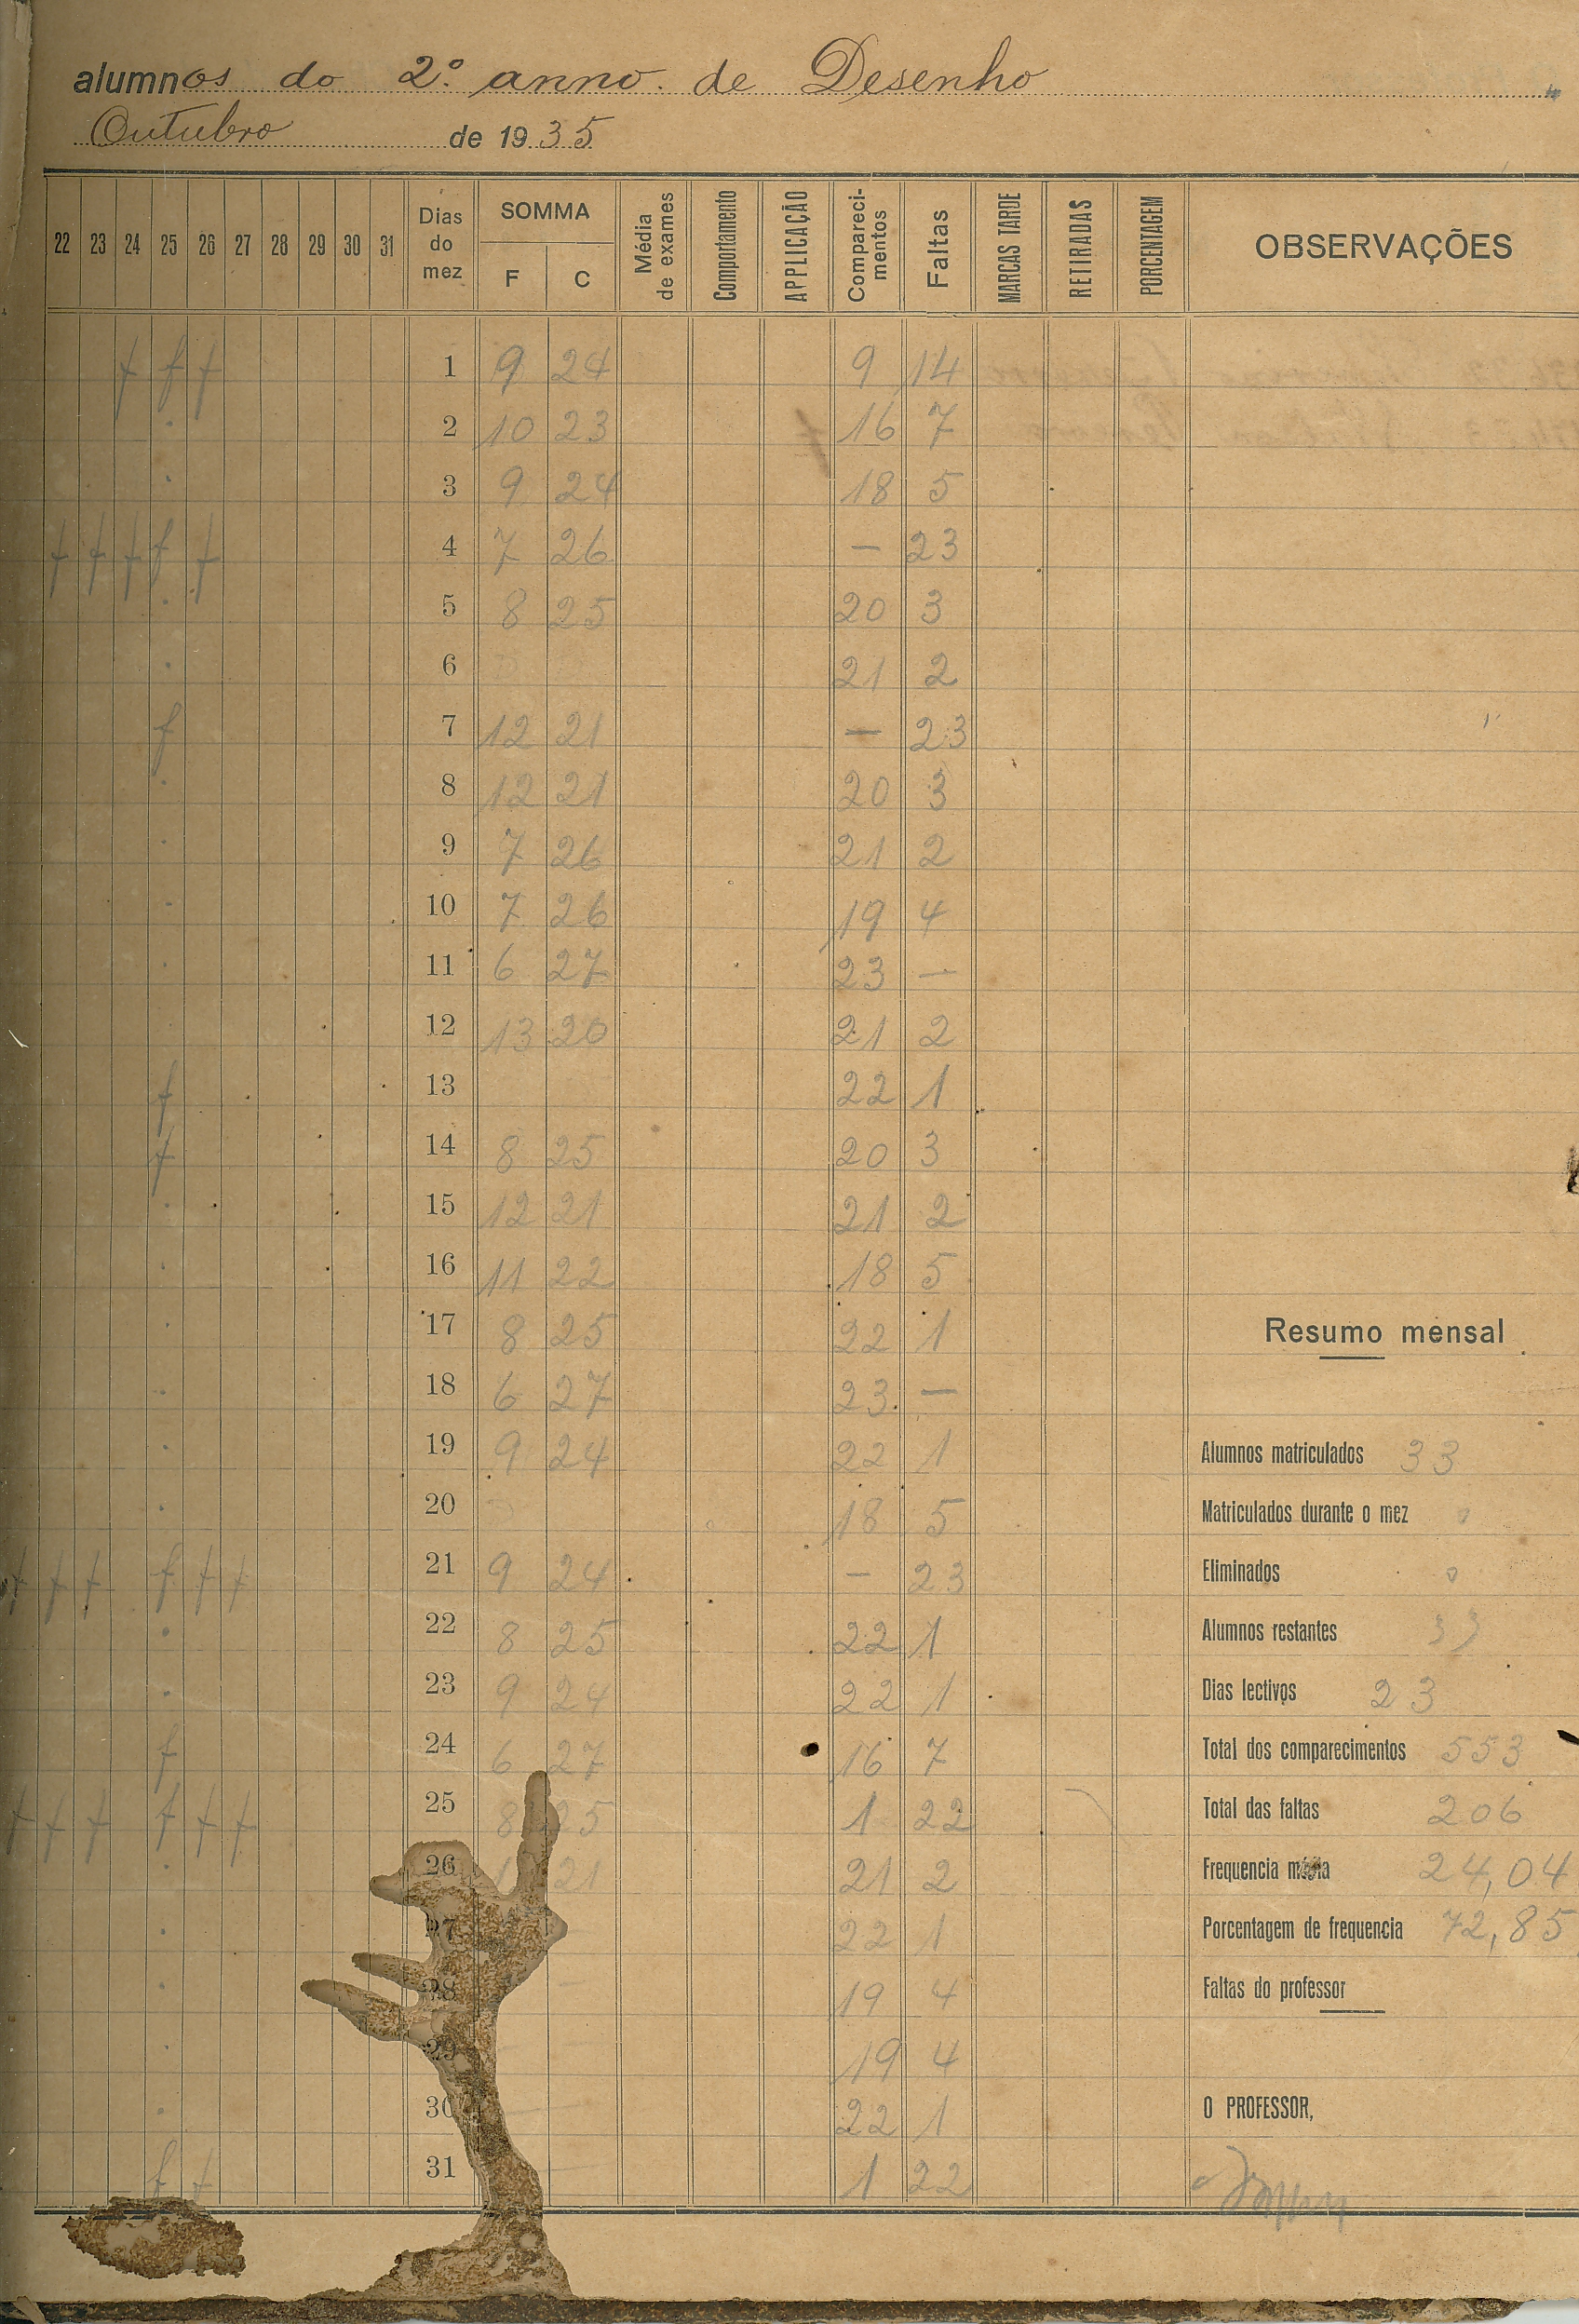 alumnos do 2º anno. de Desenho
Outubro de 1935
22 23 24 25 26 27 28 29 30 31 Dias do mez SOMMA F C Média de exames Comportamento APPLICAÇÃO Compareci-mentos Faltas MARCAS TARDE RETIRADAS PORCENTAGEM OBSERVAÇÕES
f f f 1 9 24 9 14
. 2 10 23 16 7
. 3 9 24 18 5
f f f f f 4 7 26 — 23
. 5 8 25 20 3
. 6 21 2
f 7 12 21 — 23
. 8 12 21 20 3
. 9 7 26 21 2
. 10 7 26 19 4
. 11 6 27 23 —
. 12 13 20 21 2
f 13 22 1
f 14 8 25 20 3
. 15 12 21 21 2
. 16 11 22 18 5
. 17 8 25 22 1 Resumo mensal
. 18 6 27 23 —
. 19 9 24 22 1 Alumnos matriculados 33
. 20 18 5 Matriculados durante o mez 0
f f f f f f 21 9 24 — 23 Eliminados 0
. 22 8 25 22 1 Alumnos restantes 33
. 23 9 24 22 1 Dias lectivos 23
f 24 6 27 16 7 Total dos comparecimentos 553
f f f f f f 25 8 25 1 22 Total das faltas 206
. 26 21 21 2 Frequencia média 24,04
. 27 22 1 Porcentagem de frequencia 72,85
. 28 — 19 4 Faltas do professor
. 29 — 19 4
. 30 — 22 1 O PROFESSOR,
f f 31 — 1 22